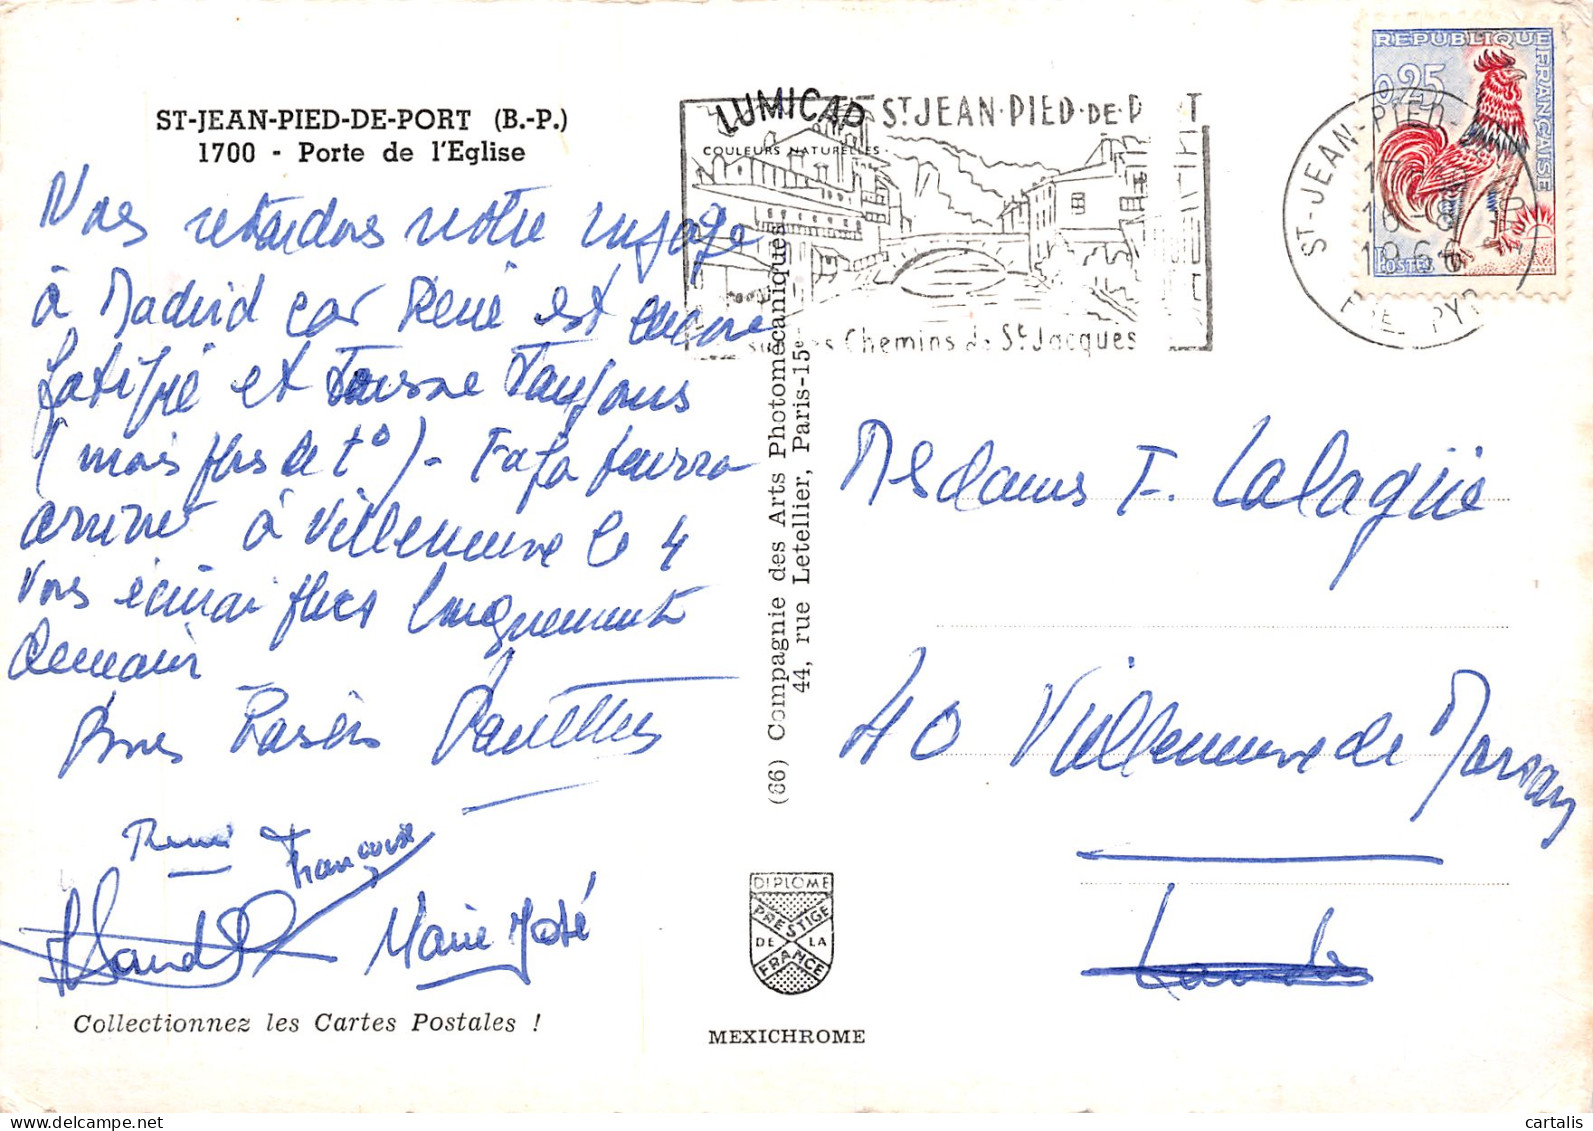 ST-JEAN-PIED-DE-PORT (B.-P.)
1700 - Porte de l'Eglise
Nous retardons notre voyage
à Madrid car René est encore
fatigué et tousse toujours
(mais plus de t°) - Fafa pourra
arriver à Villeneuve le 4
Vous écrirai plus longuement
demain
Bons baisers
René Françoise
Marie José
Collectionnez les Cartes Postales !
LUMICAP
COULEURS NATURELLES
ST JEAN·PIED·DE·PORT
sur les Chemins de St Jacques
(66) Compagnie des Arts Photomécaniques
44, rue Letellier, Paris-15e
DIPLOME
PRESTIGE
DE LA
FRANCE
MEXICHROME
REPUBLIQUE FRANÇAISE
0,25
POSTES
ST-JEAN-PIED-
17
16-8
1966
PYR
Mesdames F. Lalagüe
40 Villeneuve de Marsan
Landes
delcampe.net
cartalis